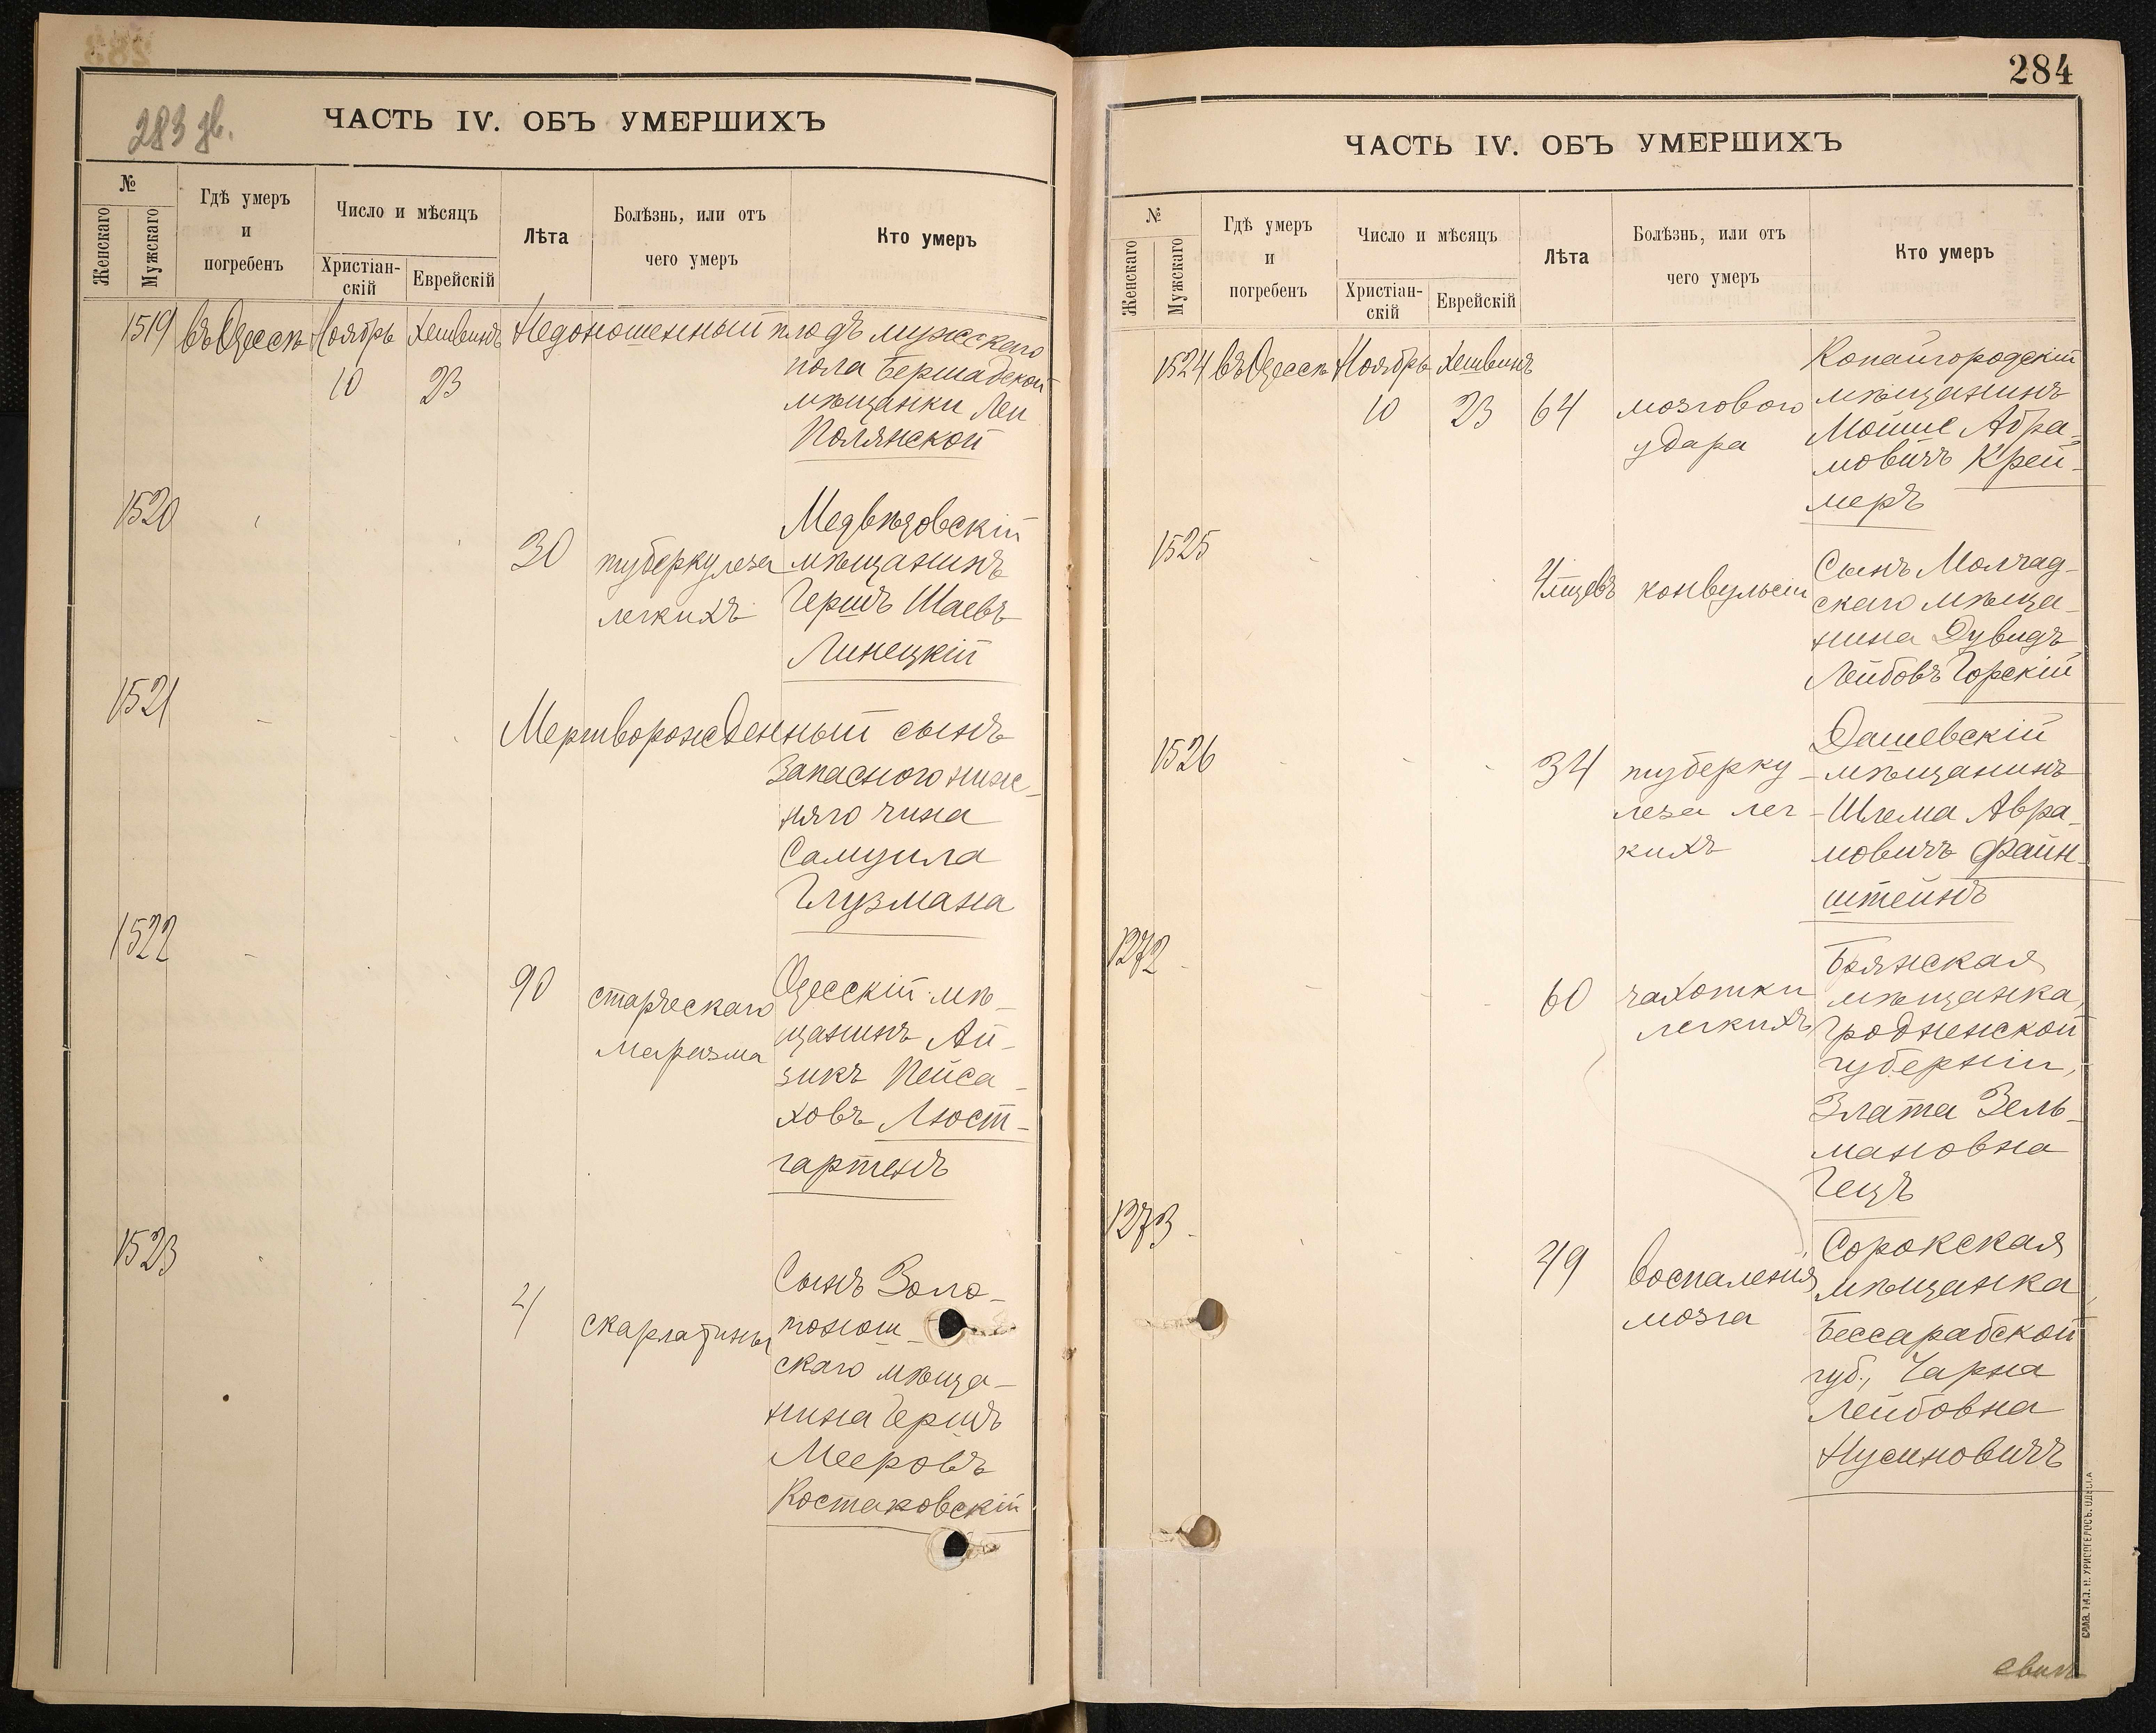 283 зв.
ЧАСТЬ IV. ОБЪ УМЕРШИХЪ
№
Женскаго
Мужскаго
Гдѣ умеръ
и
погребенъ
Число и мѣсяцъ
Христіан-
скій
Еврейскій
Лѣта
Болѣзнь, или отъ
чего умеръ
Кто умеръ
1519 въ Одессѣ Ноябрь Хешвинъ Недоношенный плодъ мужескаго
10 23
пола Бершадской
мѣщанки Леи
Полянской
1520
30
туберкулеза
легкихъ
Медвѣдовскій
мѣщанинъ
Гершъ Шаевъ
Линецкій
1521
Мертворожденный сынъ
Запаснаго ниж-
няго чина
Самуила
Глузмана
1522
90
старческаго
маразма
Одесскій мѣ-
щанинъ Ай-
зикъ Пейса-
ховъ Люст-
гартенъ
1523
4
скарлатины
Сынъ Золо-
тонош-
скаго мѣща-
нина Гершъ
Мееровъ
Костаковскій
284
ЧАСТЬ IV. ОБЪ УМЕРШИХЪ
№
Женскаго
Мужскаго
Гдѣ умеръ
и
погребенъ
Число и мѣсяцъ
Христіан-
скій
Еврейскій
Лѣта
Болѣзнь, или отъ
чего умеръ
Кто умеръ
1524 въ Одессѣ Ноябрь Хешвинъ
10 23 64
мозгового
удара
Копайгородскій
мѣщанинъ
Мойше Абра-
мовичъ Крей-
меръ
1525
4 мцевъ
конвульсіи
Сынъ Молчад-
скаго мѣща-
нина Дувидъ
Лейбовъ Горскій
1526
34
туберку-
леза лег-
кихъ
Дашевскій
мѣщанинъ
Шлема Авра-
мовичъ Файн-
штейнъ
1272
60
чахотки
легкихъ
мѣщанка,
Гродненской
губерніи,
Злата Зель-
мановна
Гецъ
1273
49
воспаленія
мозга
Сорокская
мѣщанка
Бессарабской
губ., Чарна
Лейбовна
Нусиновичъ